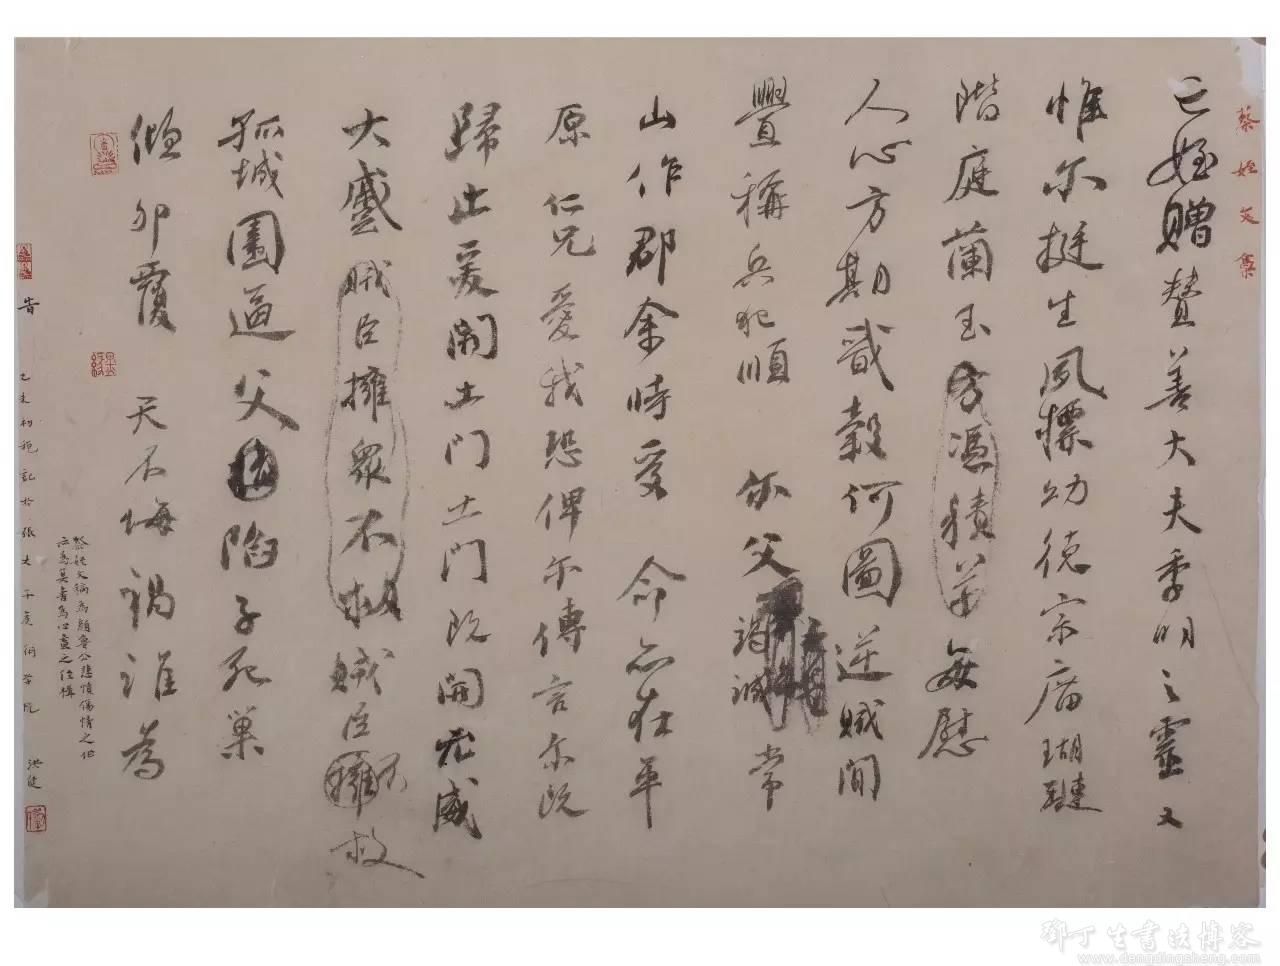 祭姪文稾
亡姪贈贊善大夫季明之靈又
惟尔挺生夙標幼德宗廟瑚璉
階庭蘭玉方憑積善每慰
人心方期戩穀何圖逆賊間
釁稱兵犯順尔父竭誠常
山作郡余時受命亦在平
原仁兄愛我恐俾尔傳言尔既
歸止爰開土門土門既開凶威
大蹙賊臣擁眾不救賊臣擁不救
孤城圍逼父陷子死巢
傾卵覆天不悔禍誰為
祭姪文稿為顏魯公悲憤傷情之作
乙未初
記於張大千
鄧丁生書法博客
www.dengdingsheng.com